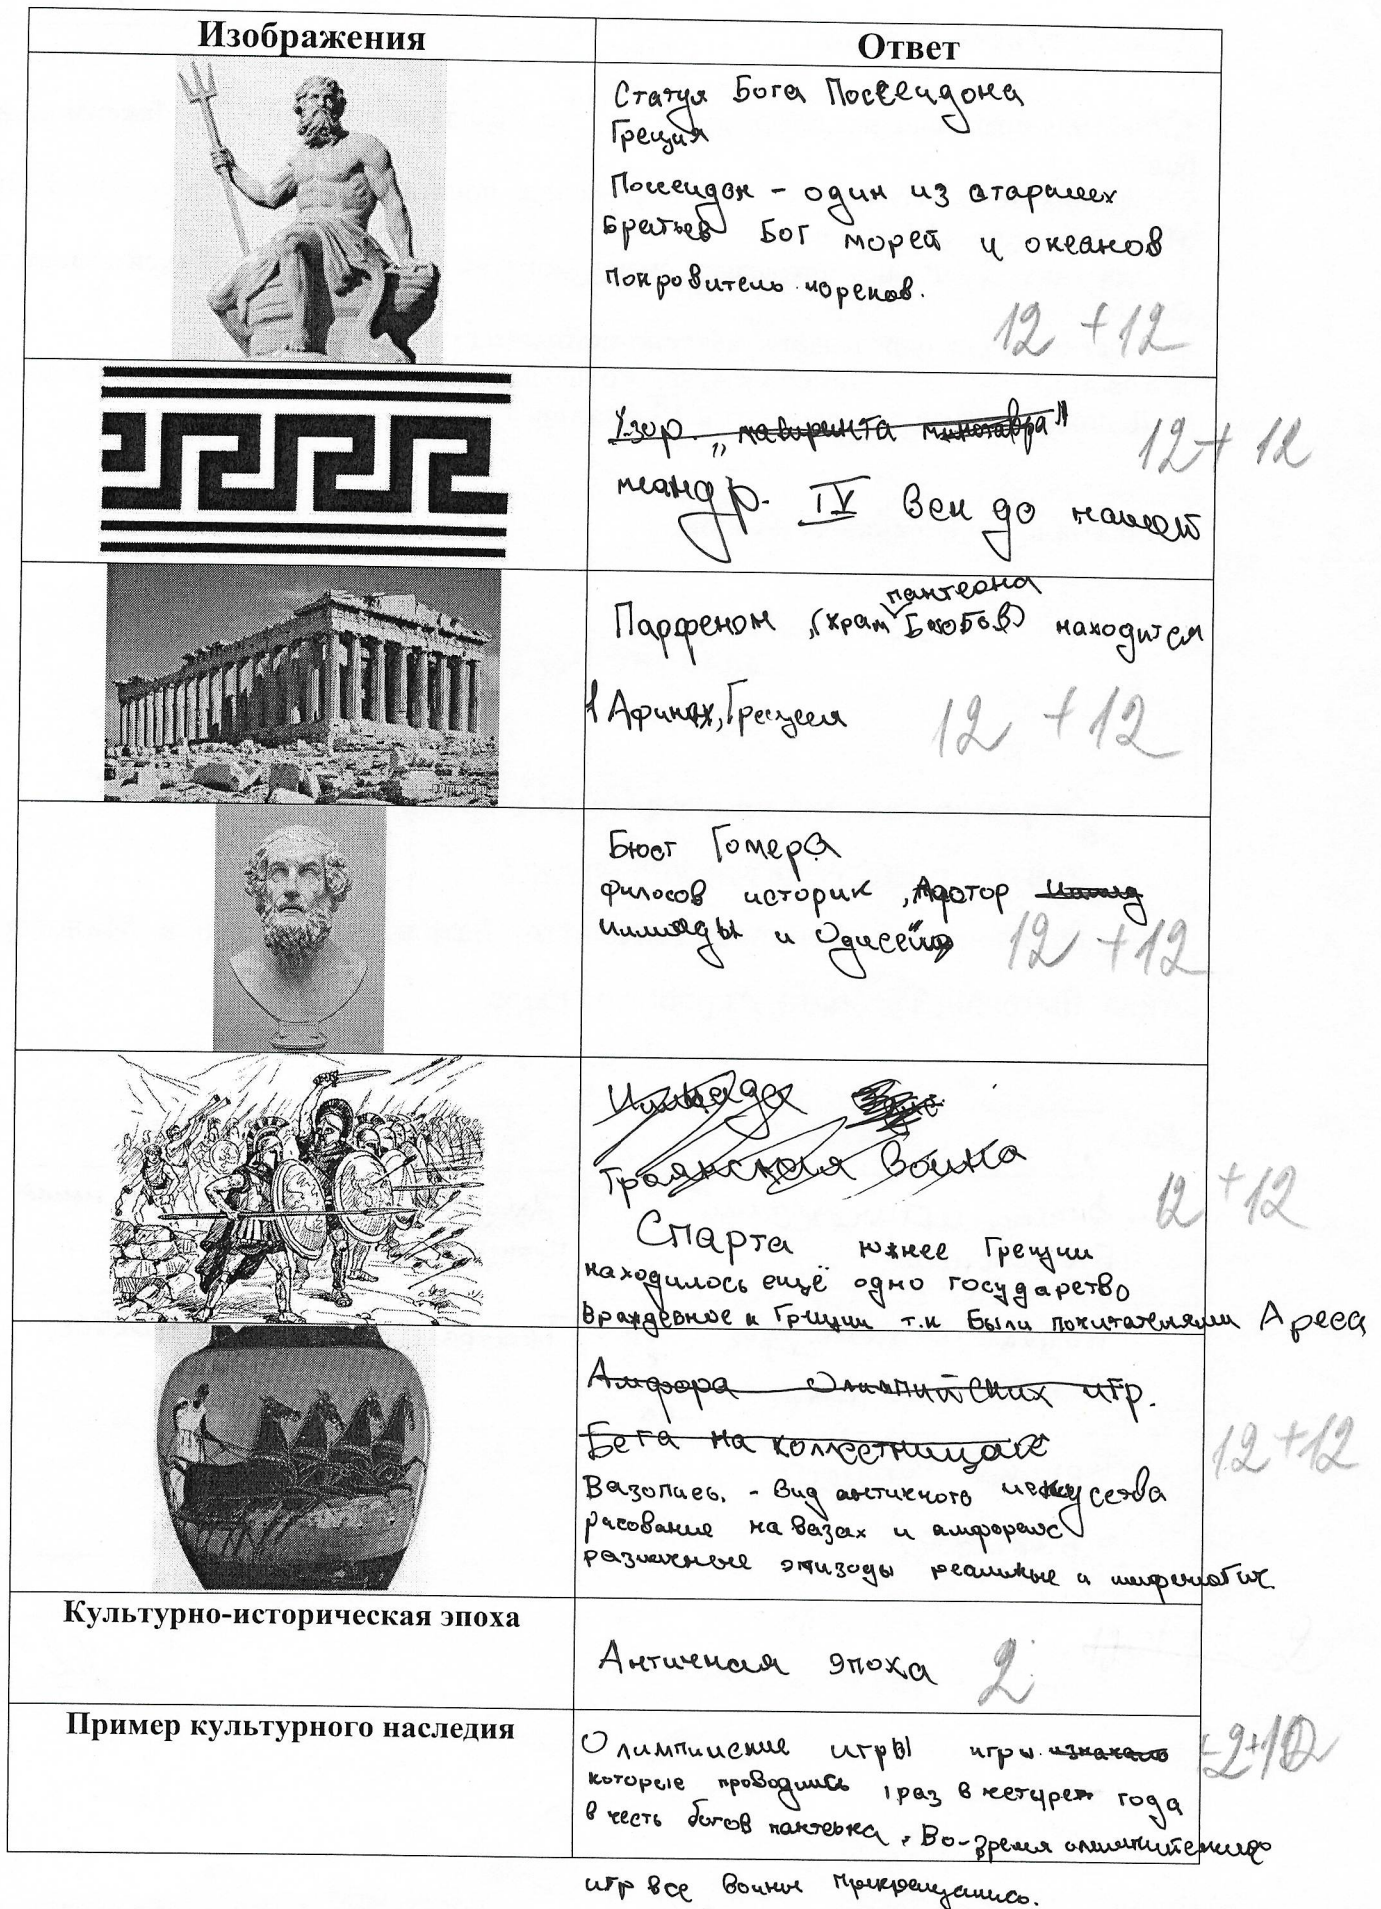 Изображения
Ответ
Статуя Бога Поссейдона
Греция
Поссейдон - один из старших
Братьев Бог морей и океанов
покровитель моряков.
12 + 12
Узор „лабиринта минотавра"
меандр. IV век до нашей
12 + 12
Парфенон (храм пантеона Богов) находится
в Афинах, Греция
12 + 12
Бюст Гомера
философ историк, Автор
иллиады и Одисеи
12 + 12
Иллиада
Траянская война
Спарта южнее Греции
находилось ещё одно государство
враждебное к Греции т.к Были почитателями Ареса
12 + 12
Амфора Олимпийских игр.
Бега на колесницах
Вазопись. - вид античного искусства
рисование на вазах и амфорах
различные эпизоды реальные и мифологич.
12 + 12
Культурно-историческая эпоха
Античная эпоха
2
Пример культурного наследия
Олимпийские игры игры изначально
которые проводились 1 раз в четыре года
в честь богов пантеона. Во-время олимпийских
игр все войны прекращались.